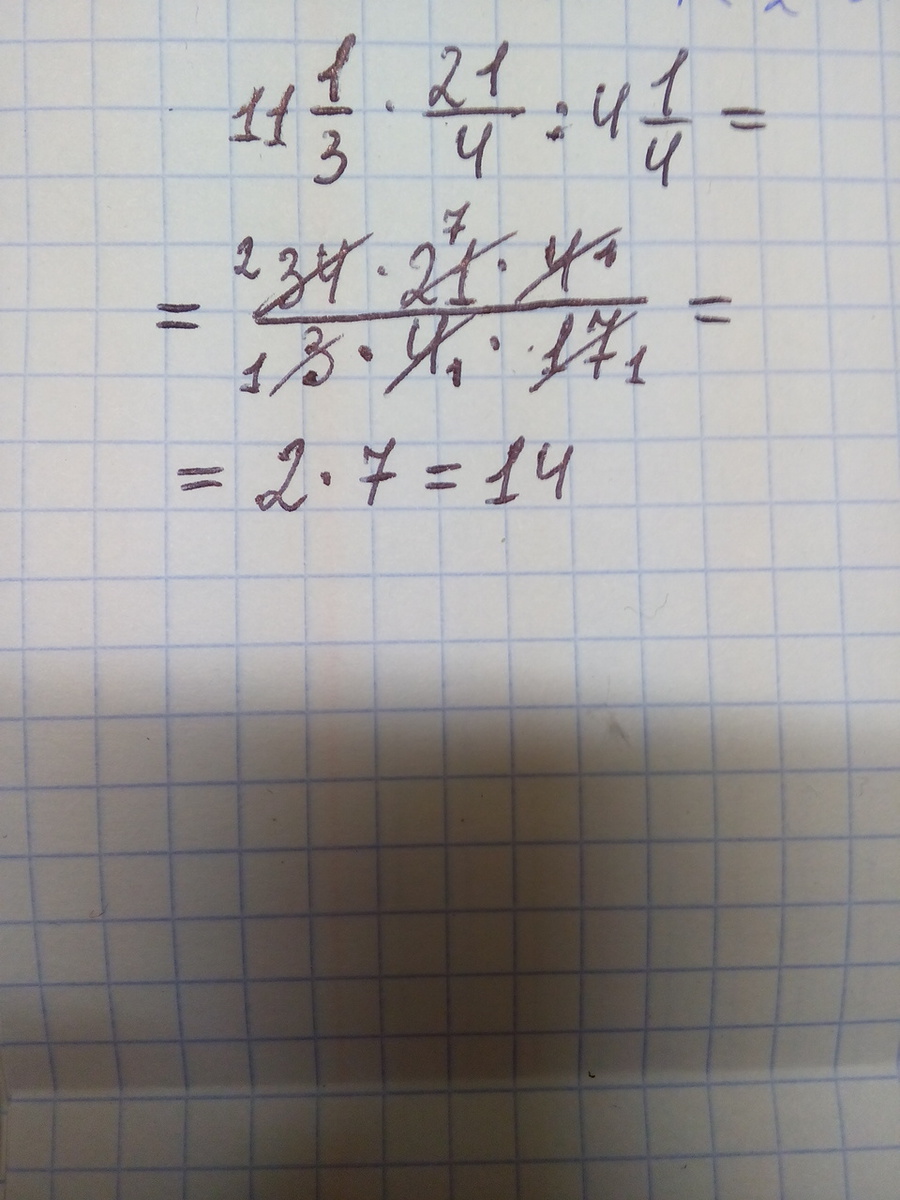 11 1/3 · 21/4 : 4 1/4 =
= 2 34 · 21 7 · 4 1 / 1 3 · 4 1 · 17 1 =
= 2 · 7 = 14